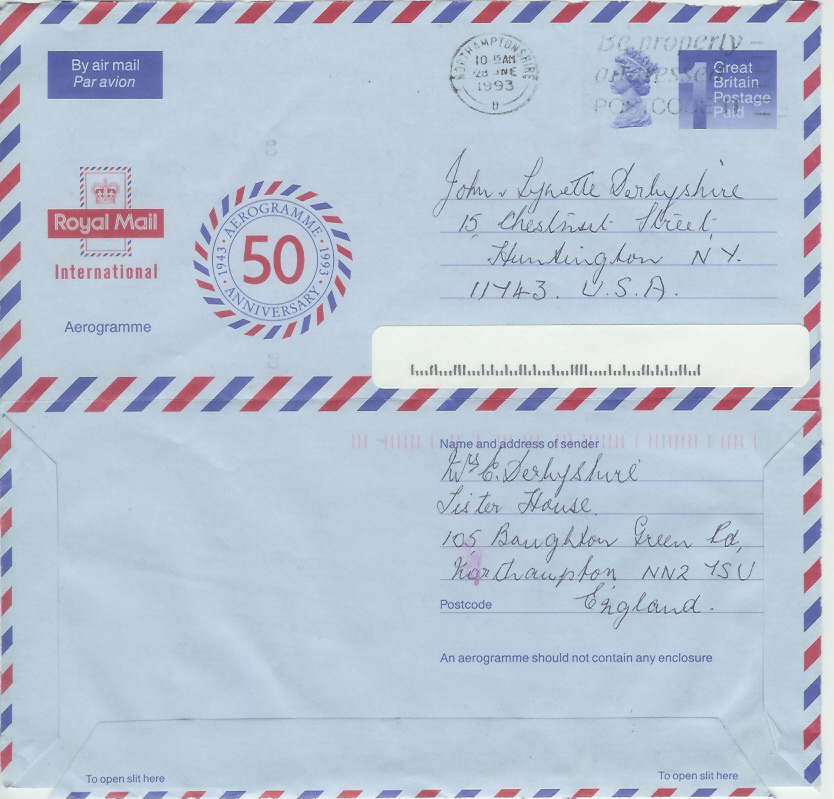 By air mail
Par avion
NORTHAMPTONSHIRE
10 15AM
28 JNE
1993
Be properly –
addressed
POSTCODE IT
Great
Britain
Postage
Paid
Royal Mail
International
Aerogramme
1943 • AEROGRAMME • 1993
50
ANNIVERSARY
John & Lynette Derbyshire
15 Chestnut Street,
Huntington NY.
11743. U.S.A.
Name and address of sender
Mrs E. Derbyshire
Lister House.
105 Boughton Green Rd,
Northampton NN2 7SU
Postcode England.
An aerogramme should not contain any enclosure
To open slit here
To open slit here